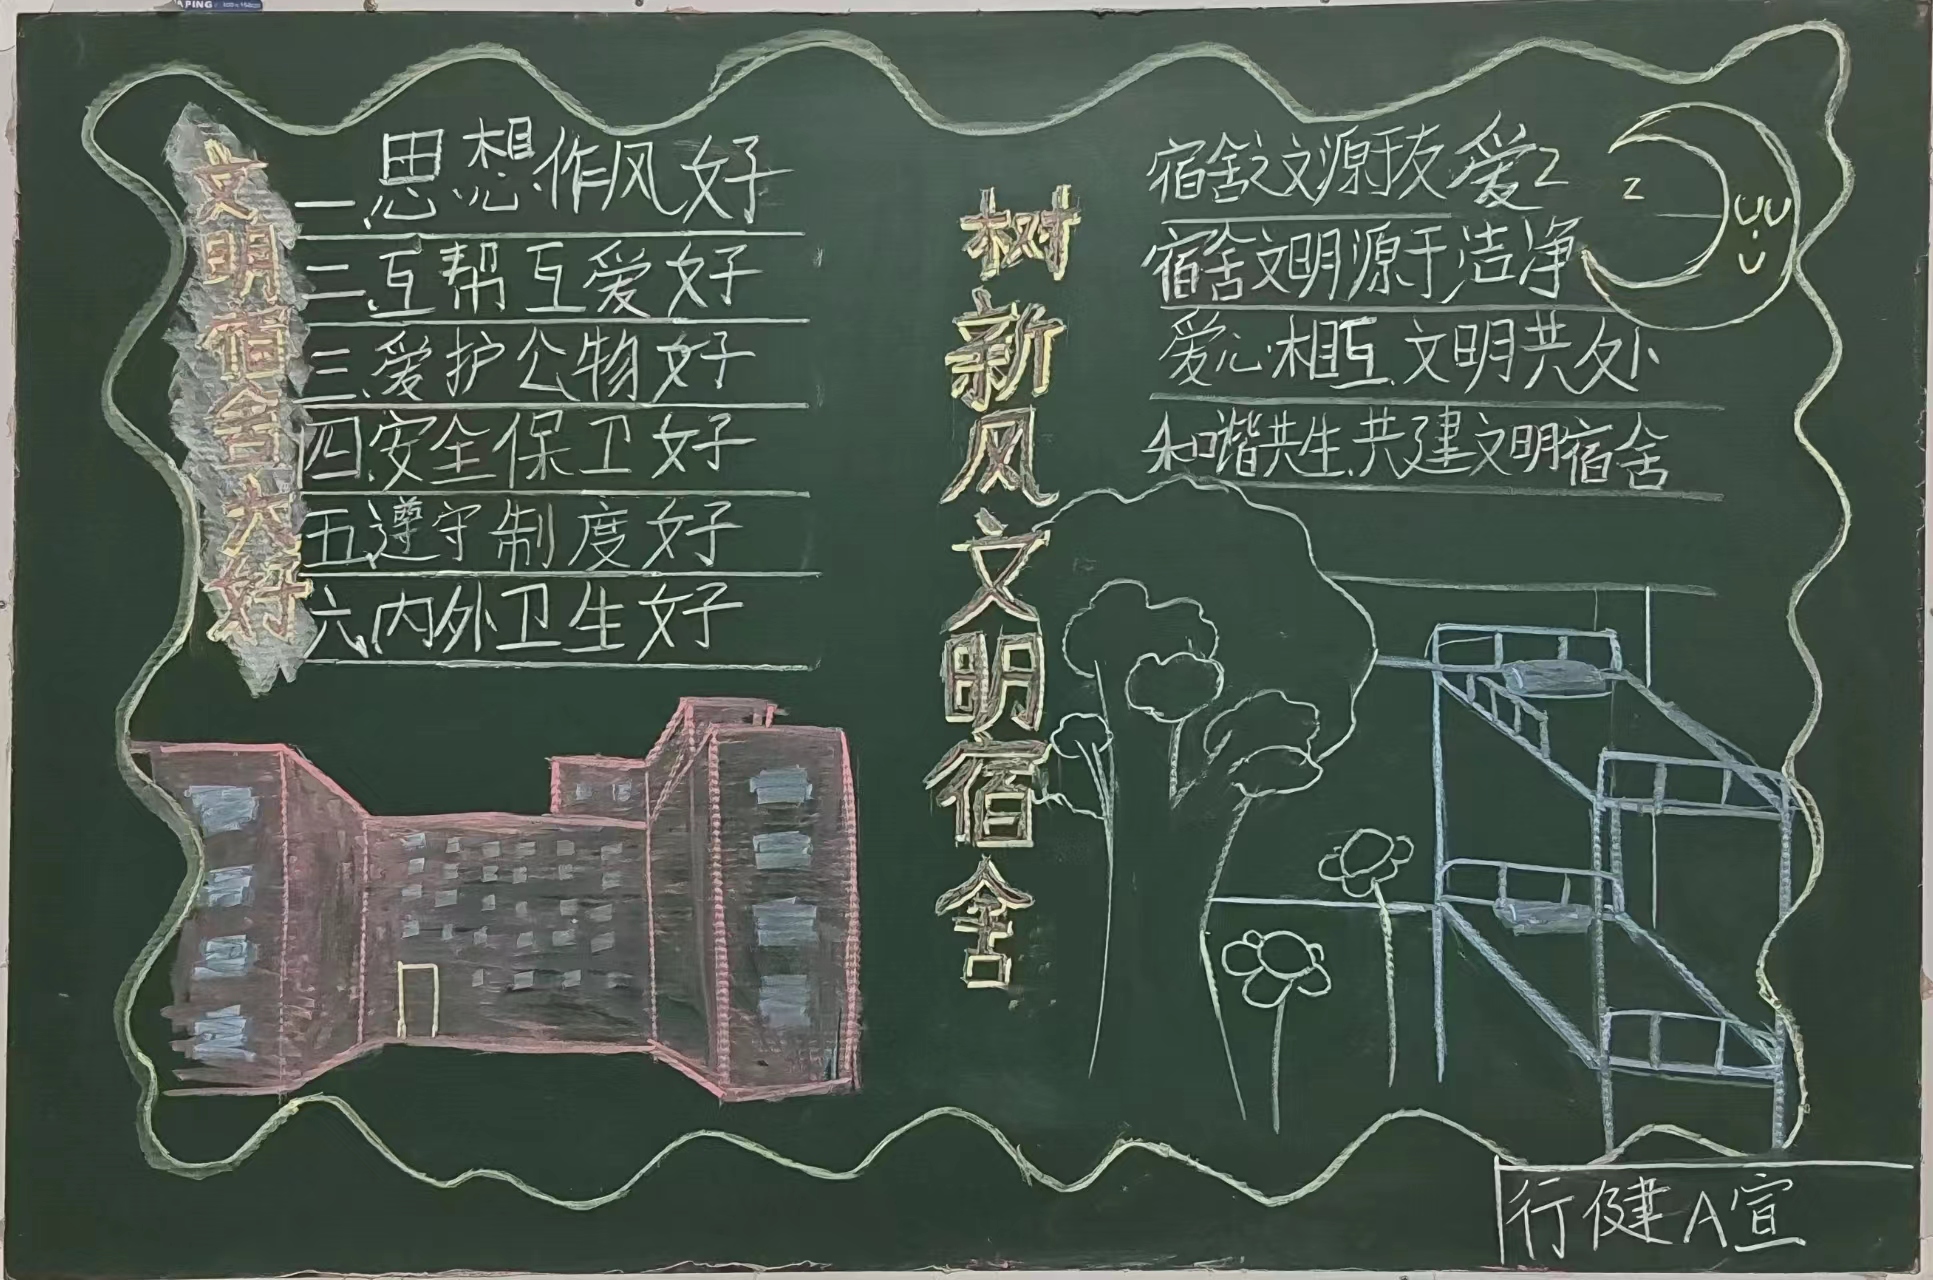 APING
文明宿舍六好
一、思想作风好
二、互帮互爱好
三、爱护公物好
四、安全保卫好
五、遵守制度好
六、内外卫生好
树新风文明宿舍
宿舍之文源于友爱
宿舍文明源于洁净
爱心相互、文明共处
和谐共生、共建文明宿舍
z
z
行健A宣